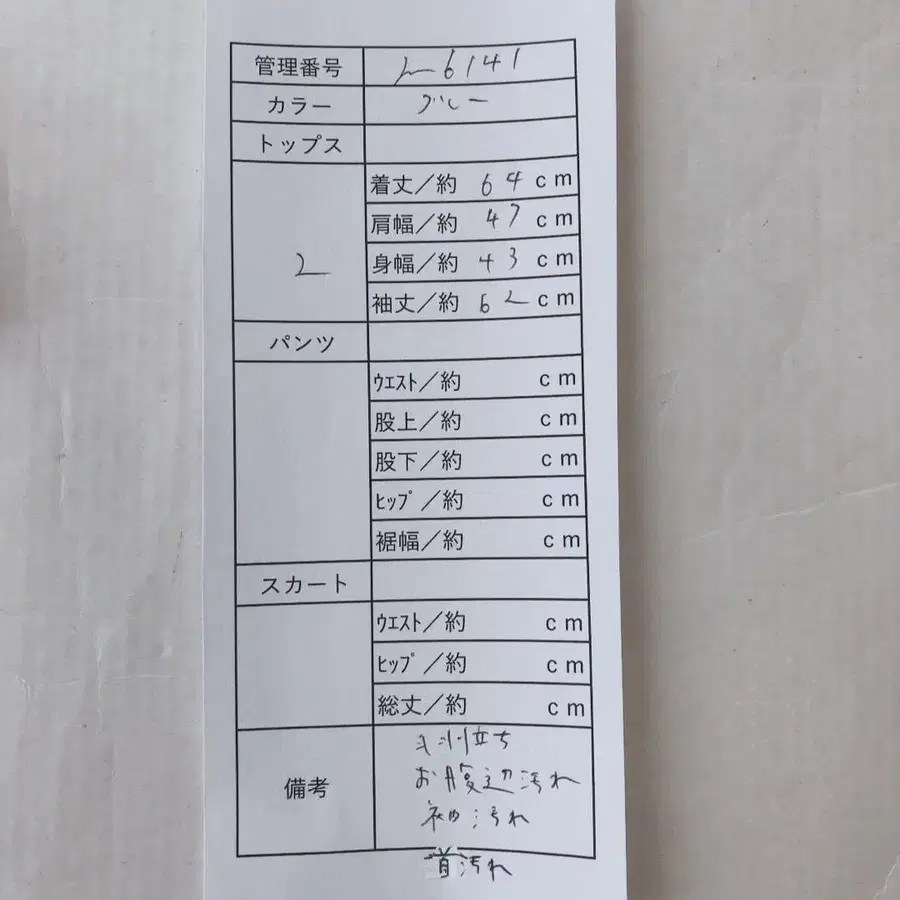 管理番号 6141
カラー グレー
トップス
着丈／約 64 cm
肩幅／約 47 cm
2 身幅／約 43 cm
袖丈／約 62 cm
パンツ
ｳｴｽﾄ／約 cm
股上／約 cm
股下／約 cm
ﾋｯﾌﾟ／約 cm
裾幅／約 cm
スカート
ｳｴｽﾄ／約 cm
ﾋｯﾌﾟ／約 cm
総丈／約 cm
毛羽立ち
備考 お腹辺汚れ
袖汚れ
首汚れ